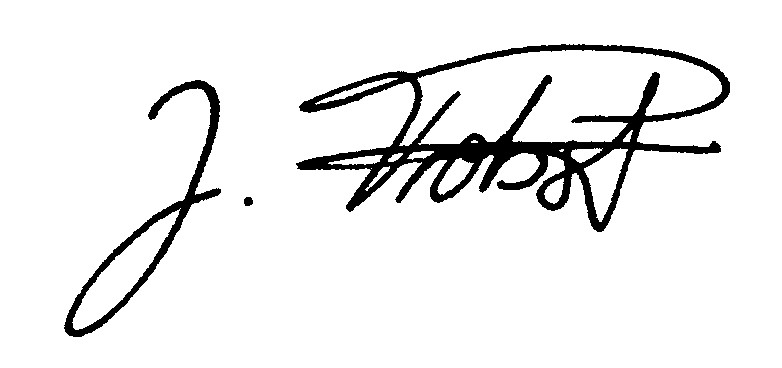 J. Probst